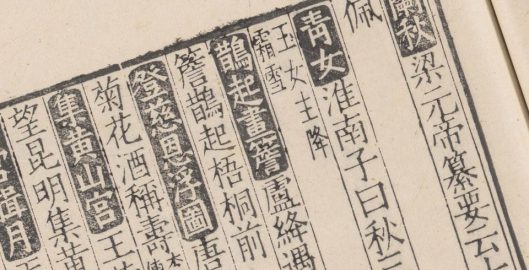 蘭秋 梁元帝纂要云
佩
青女 淮南子曰秋三
玉女主降
霜雪
鵲起畫簷 盧絳遇
簷鵲起梧桐前
登慈恩浮圖 唐
菊花酒稱壽本
集黃山宮 王
望昆明集黃
月